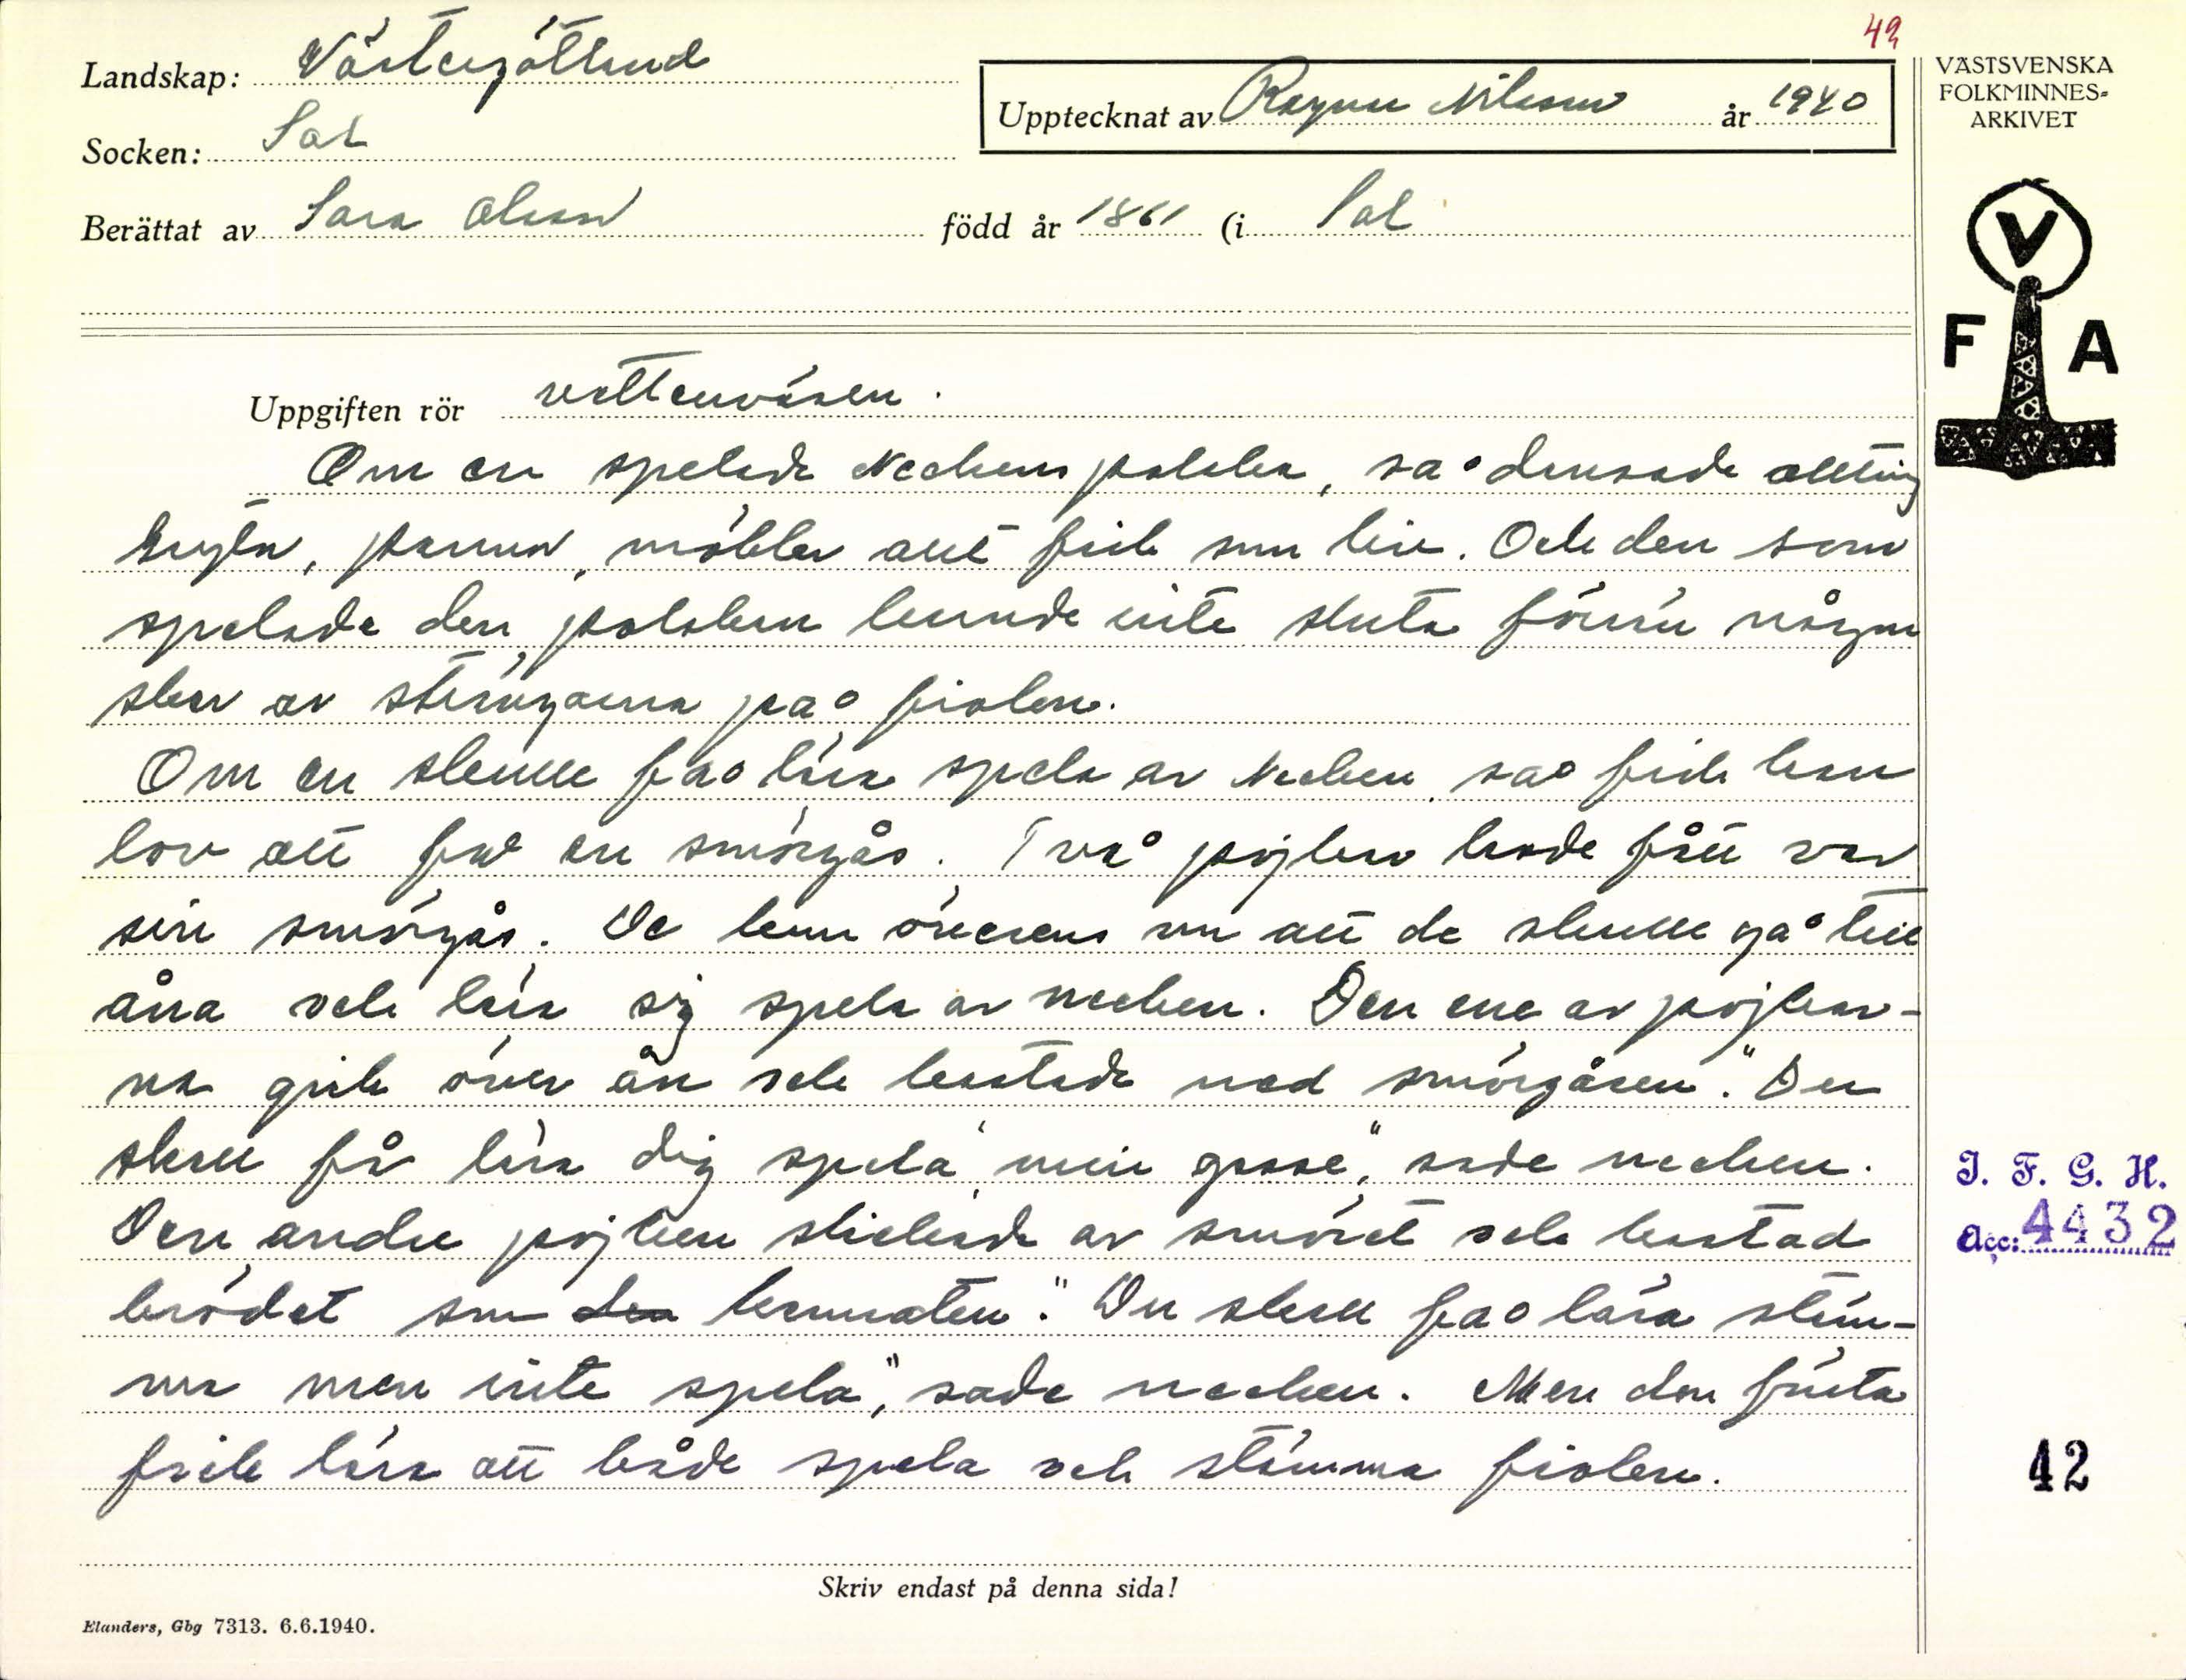 49
Landskap: Västergötland
Upptecknat av Ragnar Nilsson år 1940
Socken: Sal
Berättat av Sara Olsson född år 1861 (i Sal
VÄSTSVENSKA
FOLKMINNES-
ARKIVET
V
F A
Uppgiften rör vattenväsen.
Om en spelade Neckens polska, så dansade allting
grytor, pannor, möbler allt fick som liv. Och den som
spelade den polskan kunde inte sluta förrän någon
skar av strängarna på fiolen.
Om en skulle få lära spela av Necken, så fick han
lov att få en smörgås. Två pojkar hade fått var
sin smörgås. De kom överens om att de skulle gå till
åna och lära sig spela av necken. Den ene av pojkar-
na gick över ån och kastade ned smörgåsen. "Du
skall få lära dig spela, min gosse", sade necken.
Den andre pojken slickade av smöret och kastad
brödet som kamraten. "Du skall få lära stäm-
ma men inte spela", sade necken. Men den första
fick lära att både spela och stämma fiolen.
Skriv endast på denna sida!
Elanders, Gbg 7313. 6.6.1940.
I. F. G. H.
Acc: 4432
42